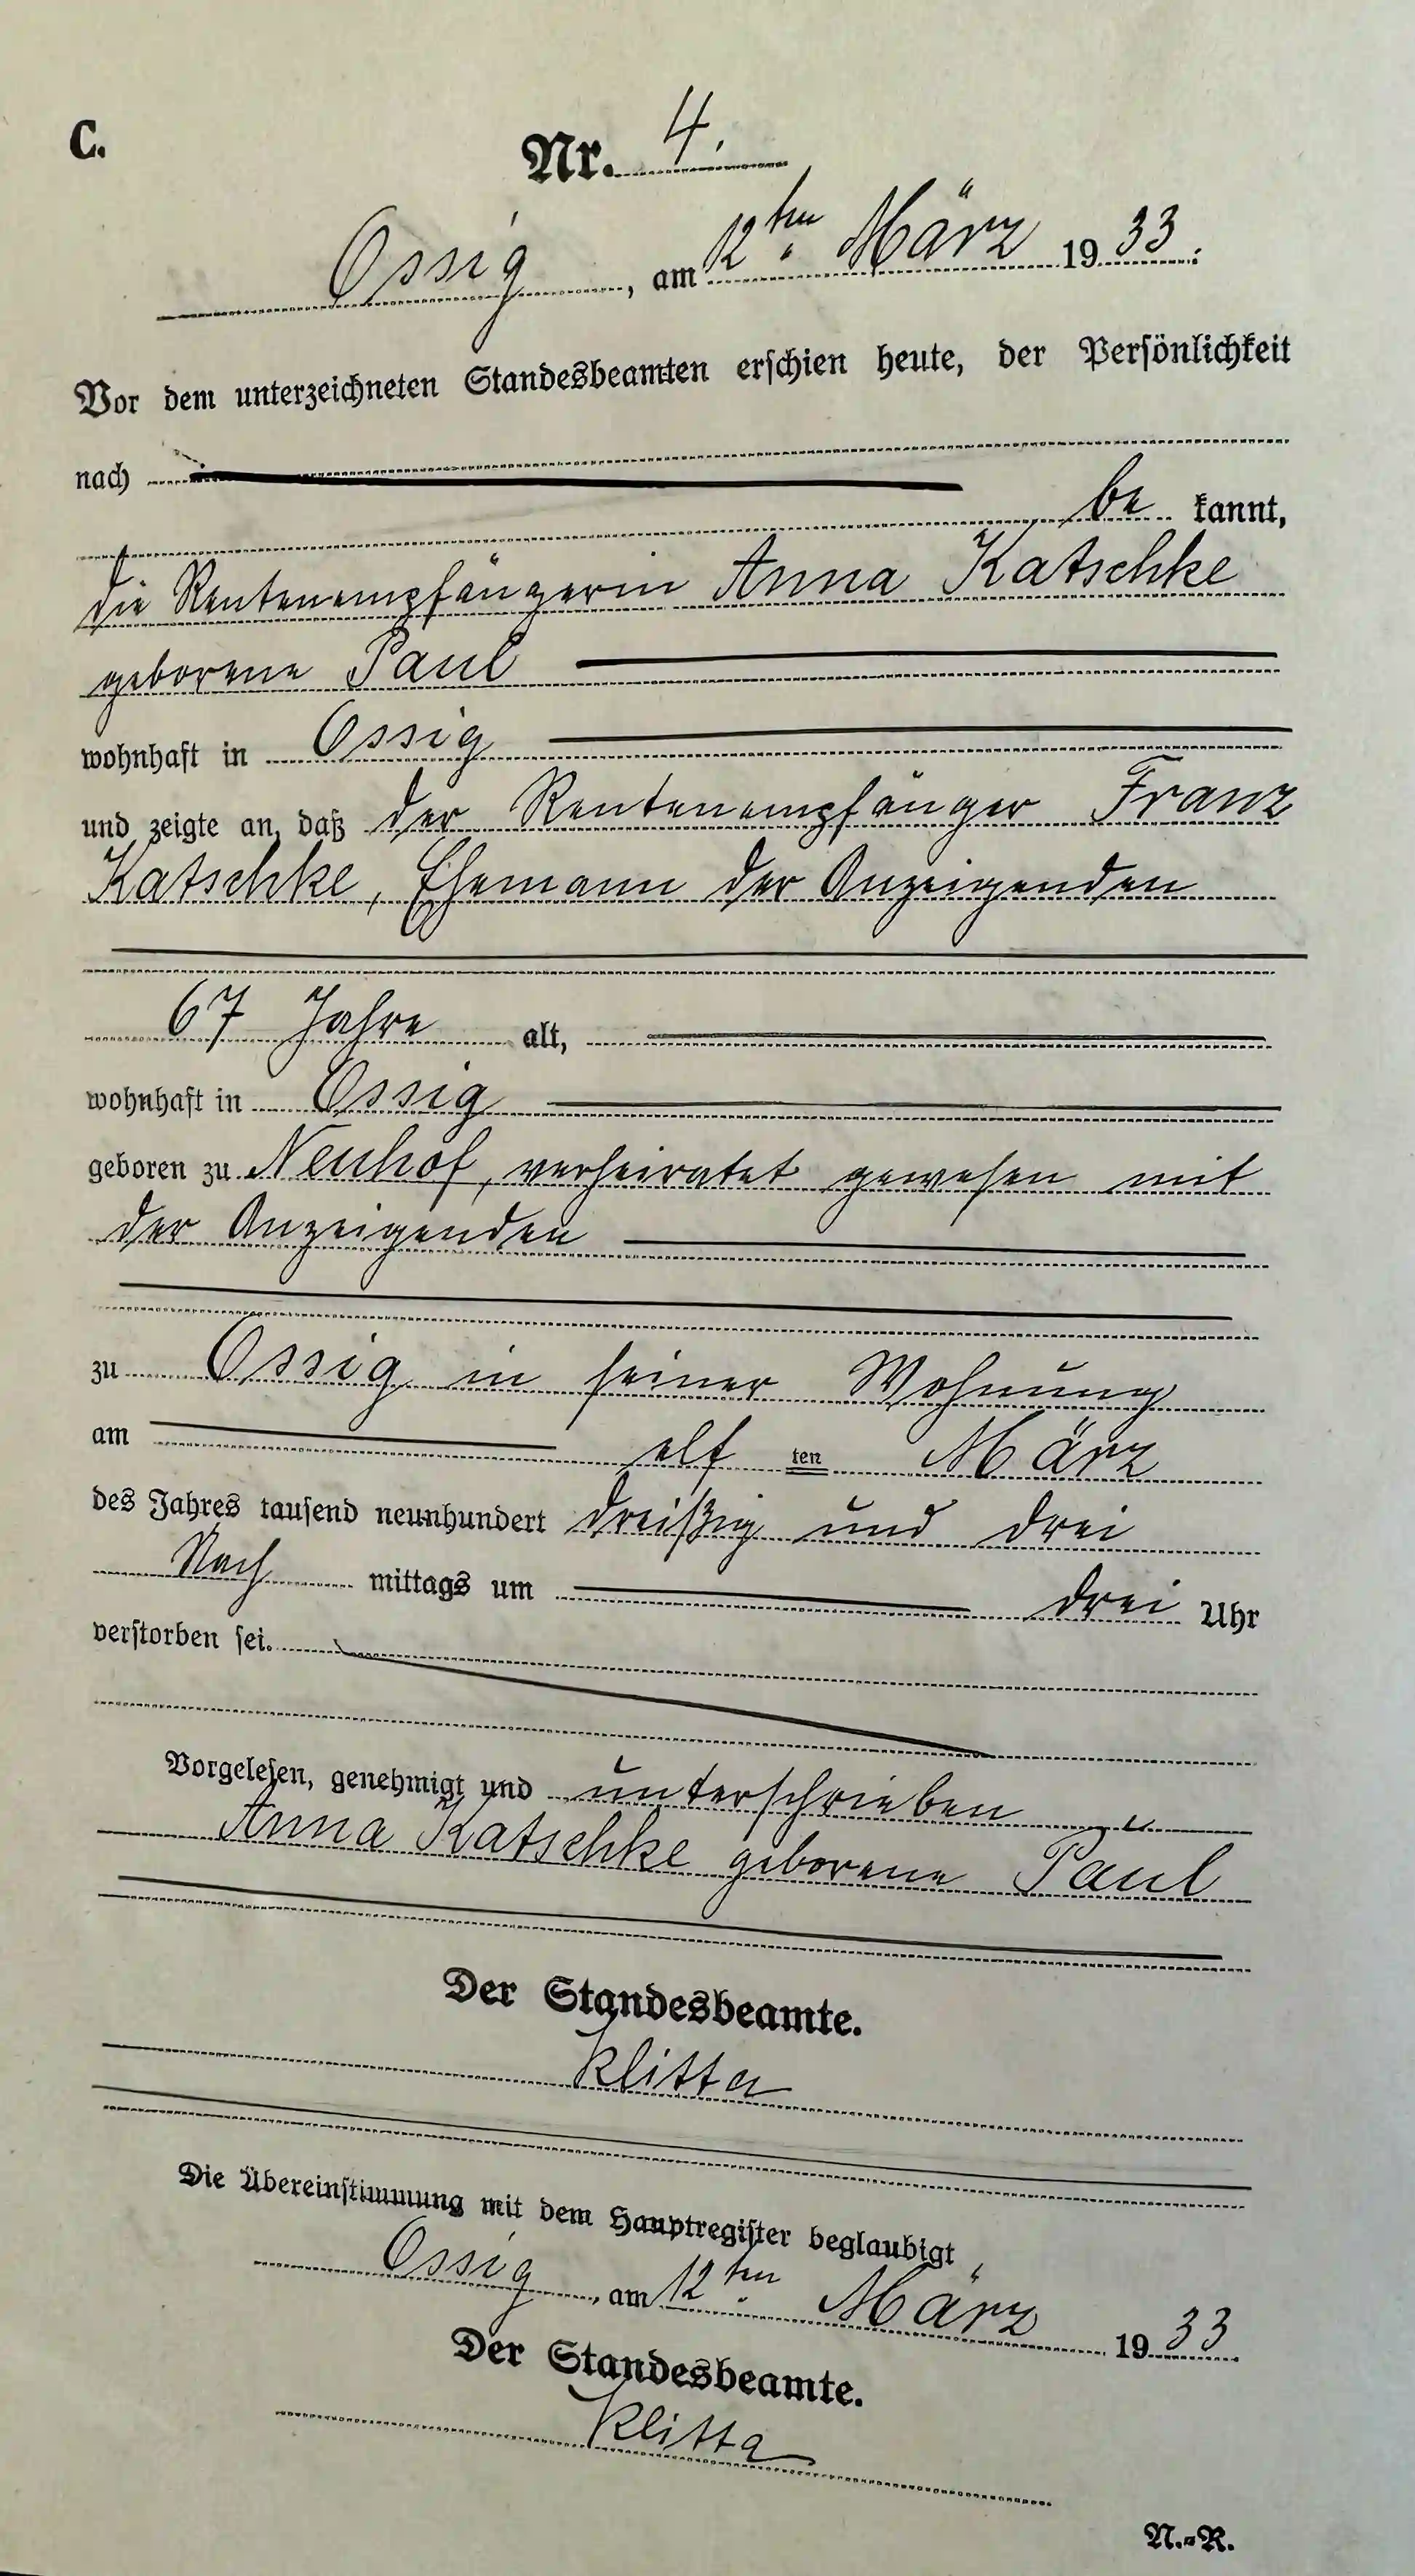 C.
Nr. 4.
Ossig, am 12ten März 1933.
Vor dem unterzeichneten Standesbeamten erschien heute, der Persönlichkeit
nach
be kannt,
die Rentenempfängerin Anna Katschke
geborene Paul
wohnhaft in Ossig
und zeigte an, daß der Rentenempfänger Franz
Katschke, Ehemann der Anzeigenden
67 Jahre alt,
wohnhaft in Ossig
geboren zu Neuhof, verheiratet gewesen mit
der Anzeigenden
zu Ossig in seiner Wohnung
am elf ten März
des Jahres tausend neunhundert dreißig und drei
Nach mittags um drei Uhr
verstorben sei.
Vorgelesen, genehmigt und unterschrieben
Anna Katschke geborene Paul
Der Standesbeamte.
Klitta
Die Übereinstimmung mit dem Hauptregister beglaubigt
Ossig, am 12ten März 1933
Der Standesbeamte.
Klitta
N.-R.